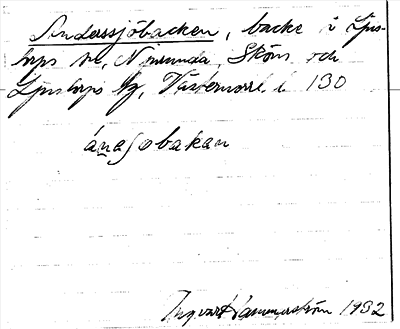 Anderssjöbacken, backe i Ljus-
torps sn, Njurunda, Sköns och
Ljustorps tg, Västernorrl. l. 130
ánaſobakan
Ingvar Hammarström 1932